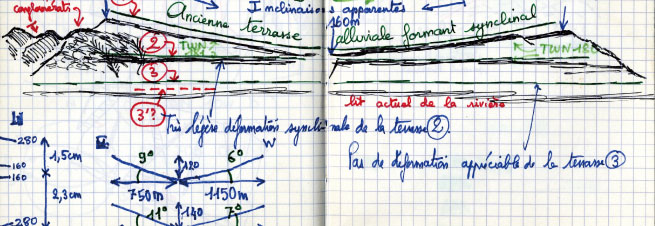 conglomérats
Inclinaisons apparentes
160m
Ancienne terrasse
alluviale formant synclinal
2
3
3'?
TWN 18
lit actual de la rivière
Très légère déformation synclinale de la terrasse 2.
Pas de déformation appréciable de la terrasse 3
280
1,5cm
160
160
2,3cm
280
W
9°
120
6°
750m
1150m
11°
140
7°